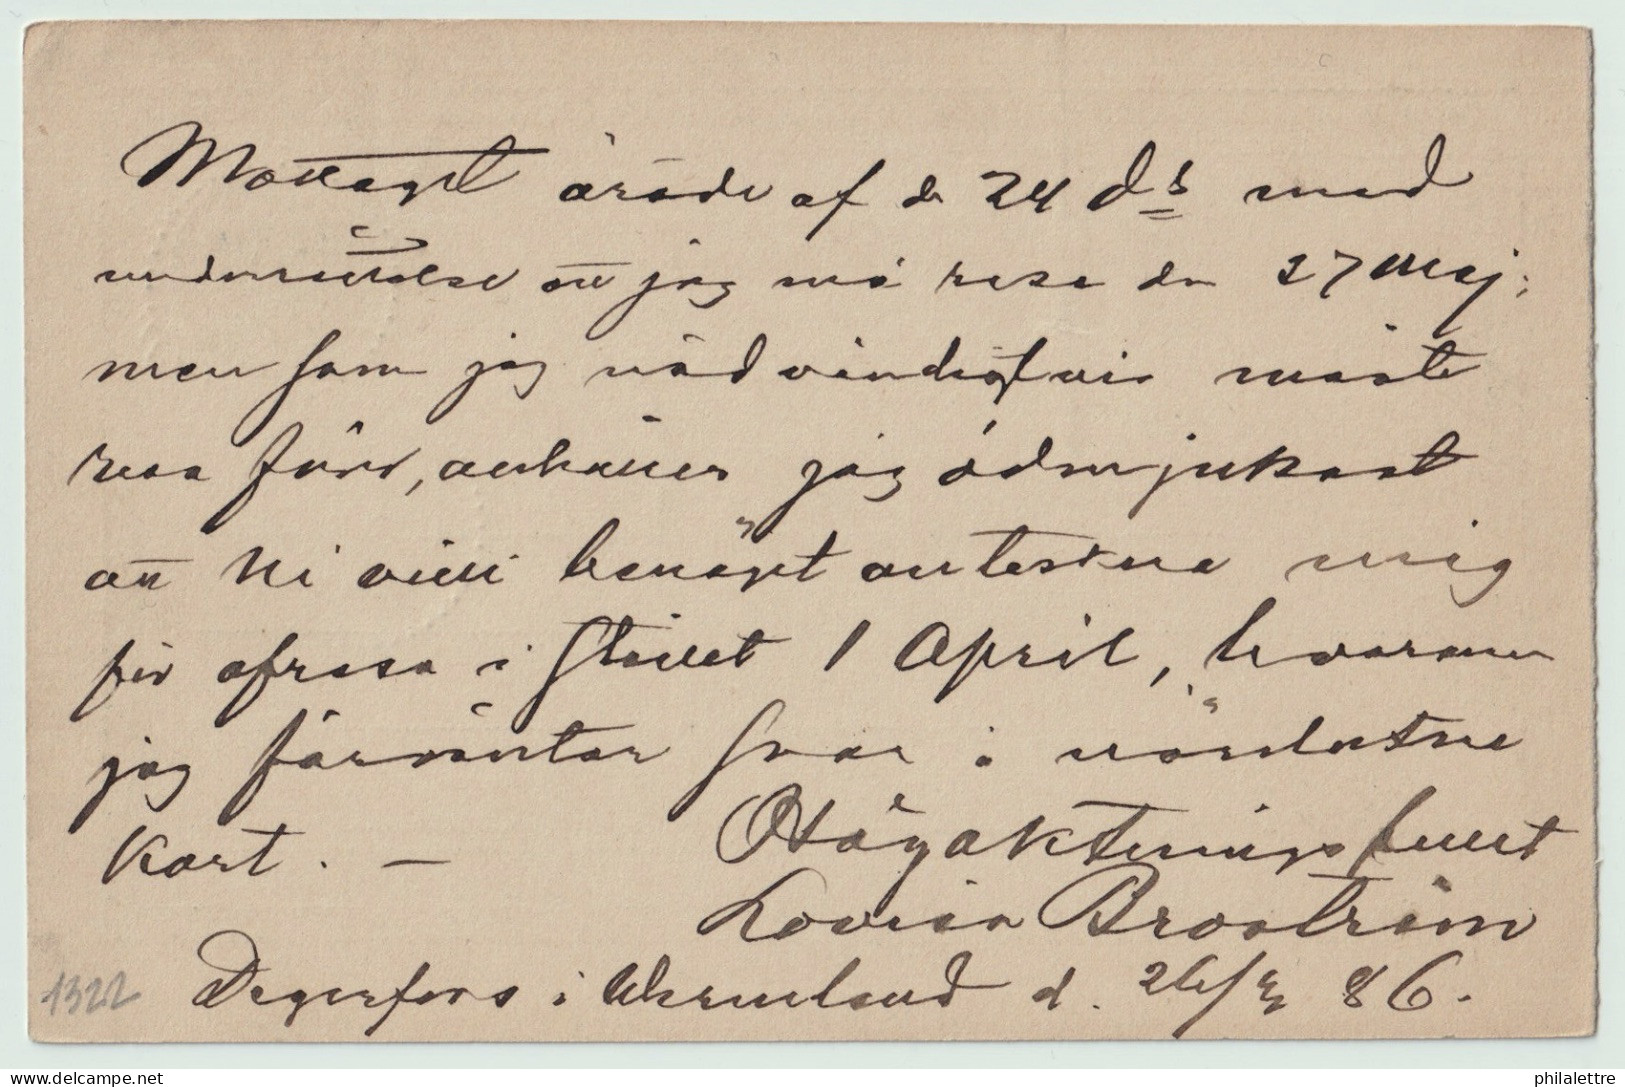 Mottaget ärade af d. 24 ds med
underrättelse att jag må resa den 27 Maj;
men som jag nödvändigtvis måste
resa förr, anhåller jag ödmjukast
att Ni ville benäget anteckna mig
för afresa i stället 1 April, hvarom
jag förväntar svar i närslutne
kort. —
Högaktningsfullt
Lovisa Broström
Degerfors i Wermland d. 26/3 86.
1322
philalettre.delcampe.net
philalettre